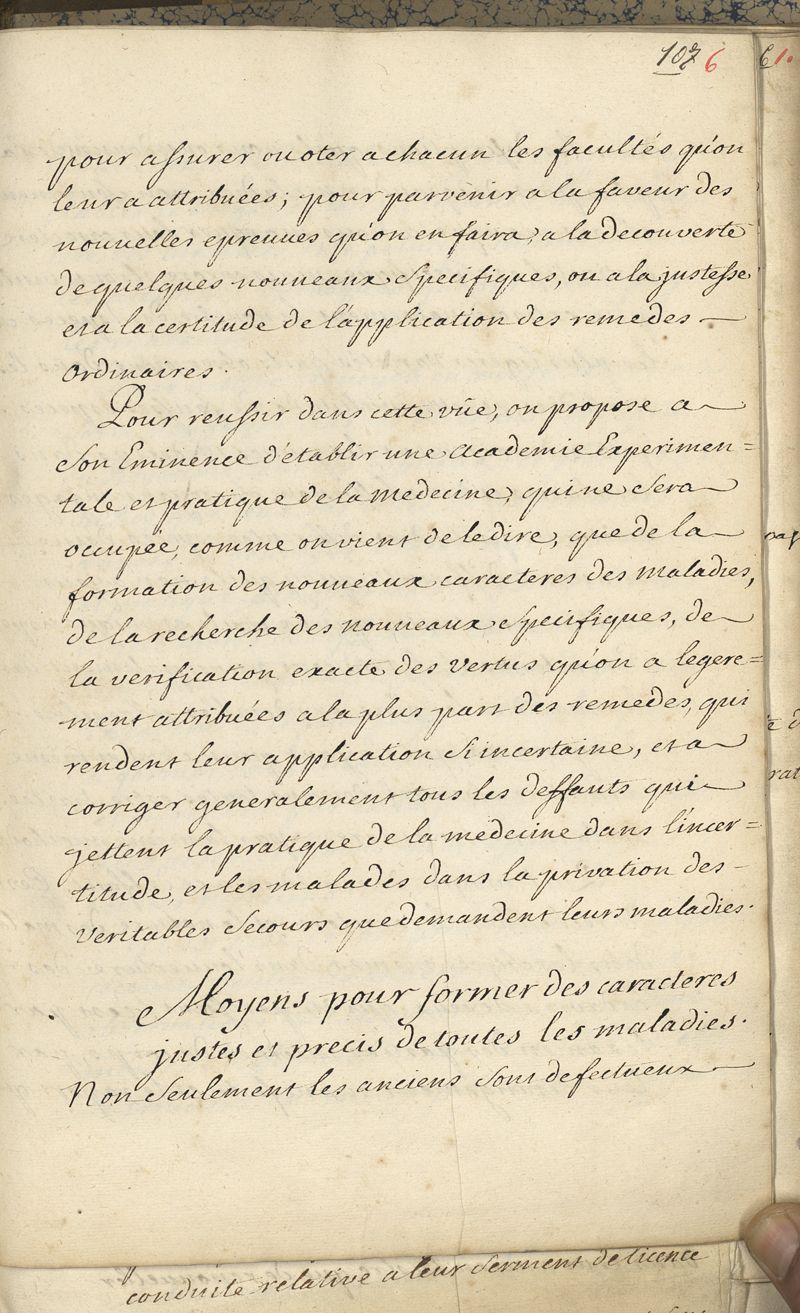 107 6 61.
pour assurer ou oter a chacun les facultés qu'on
leur a attribuées; pour parvenir a la faveur des
nouvelles epreuves qu'on en faira, a la decouverte
de quelques nouveaux specifiques, ou a la justesse
et a la certitude de l'application des remedes
ordinaires.
Pour reussir dans cette vüe, on propose a
Son Eminence d'établir une Academie Experimen=
tale et pratique de la medecine, qui ne sera
occupée, comme on vient de le dire, que de la
formation des nouveaux caracteres des maladies,
de la recherche des nouveaux specifiques, de
la verification exacte des vertus qu'on a legere=
ment attribuées a la plus part des remedes, qui
rendent leur application si incertaine, et a
corriger generalement tous les deffauts qui
jettent la pratique de la medecine dans l'incer=
titude, et les malades dans la privation des
veritables secours que demandent leurs maladies.
Moyens pour former des caracteres
justes et precis de toutes les maladies.
Non seulement les anciens sont defectueux
conduite relative a leur serment de licence